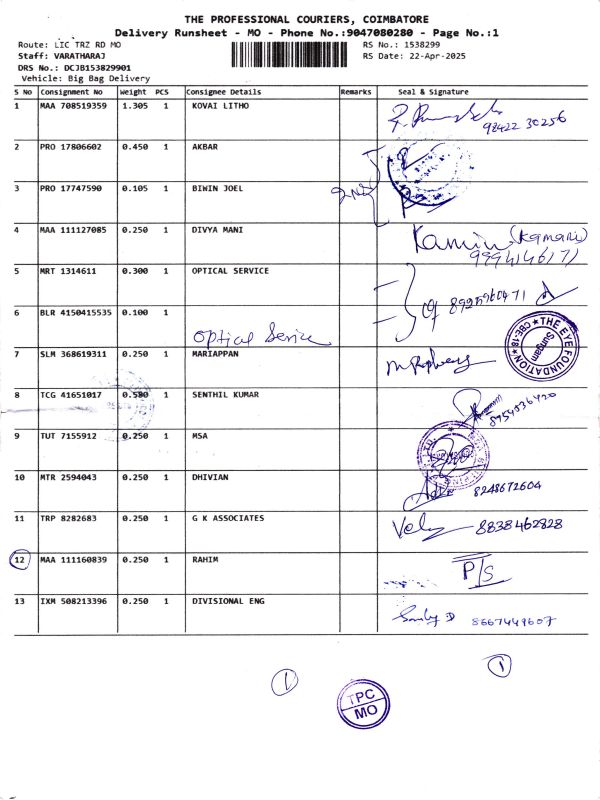 THE PROFESSIONAL COURIERS, COIMBATORE
Delivery Runsheet - MO - Phone No.:9047080280 - Page No.:1
Route: LIC TRZ RD MO
RS No.: 1538299
Staff: VARATHARAJ
RS Date: 22-Apr-2025
DRS No.: DCJB153829901
Vehicle: Big Bag Delivery
S No Consignment No Weight PCS Consignee Details Remarks Seal & Signature
1 MAA 708519359 1.305 1 KOVAI LITHO
98422 30256
2 PRO 17806602 0.450 1 AKBAR
3 PRO 17747590 0.105 1 BIWIN JOEL
4 MAA 111127085 0.250 1 DIVYA MANI
Kamini (Kamani)
9994146171
5 MRT 1314611 0.300 1 OPTICAL SERVICE
8925960471
6 BLR 4150415535 0.100 1
Optical Service
THE EYE FOUNDATION
CBE-18
Sungam
7 SLM 368619311 0.250 1 MARIAPPAN
8 TCG 41651017 0.580 1 SENTHIL KUMAR
8954836420
9 TUT 7155912 0.250 1 MSA
10 MTR 2594043 0.250 1 DHIVIAN
8248672604
11 TRP 8282683 0.250 1 G K ASSOCIATES
Velu 8838462828
12 MAA 111160839 0.250 1 RAHIM
P/S
13 IXM 508213396 0.250 1 DIVISIONAL ENG
8667449607
1
1
TPC
MO